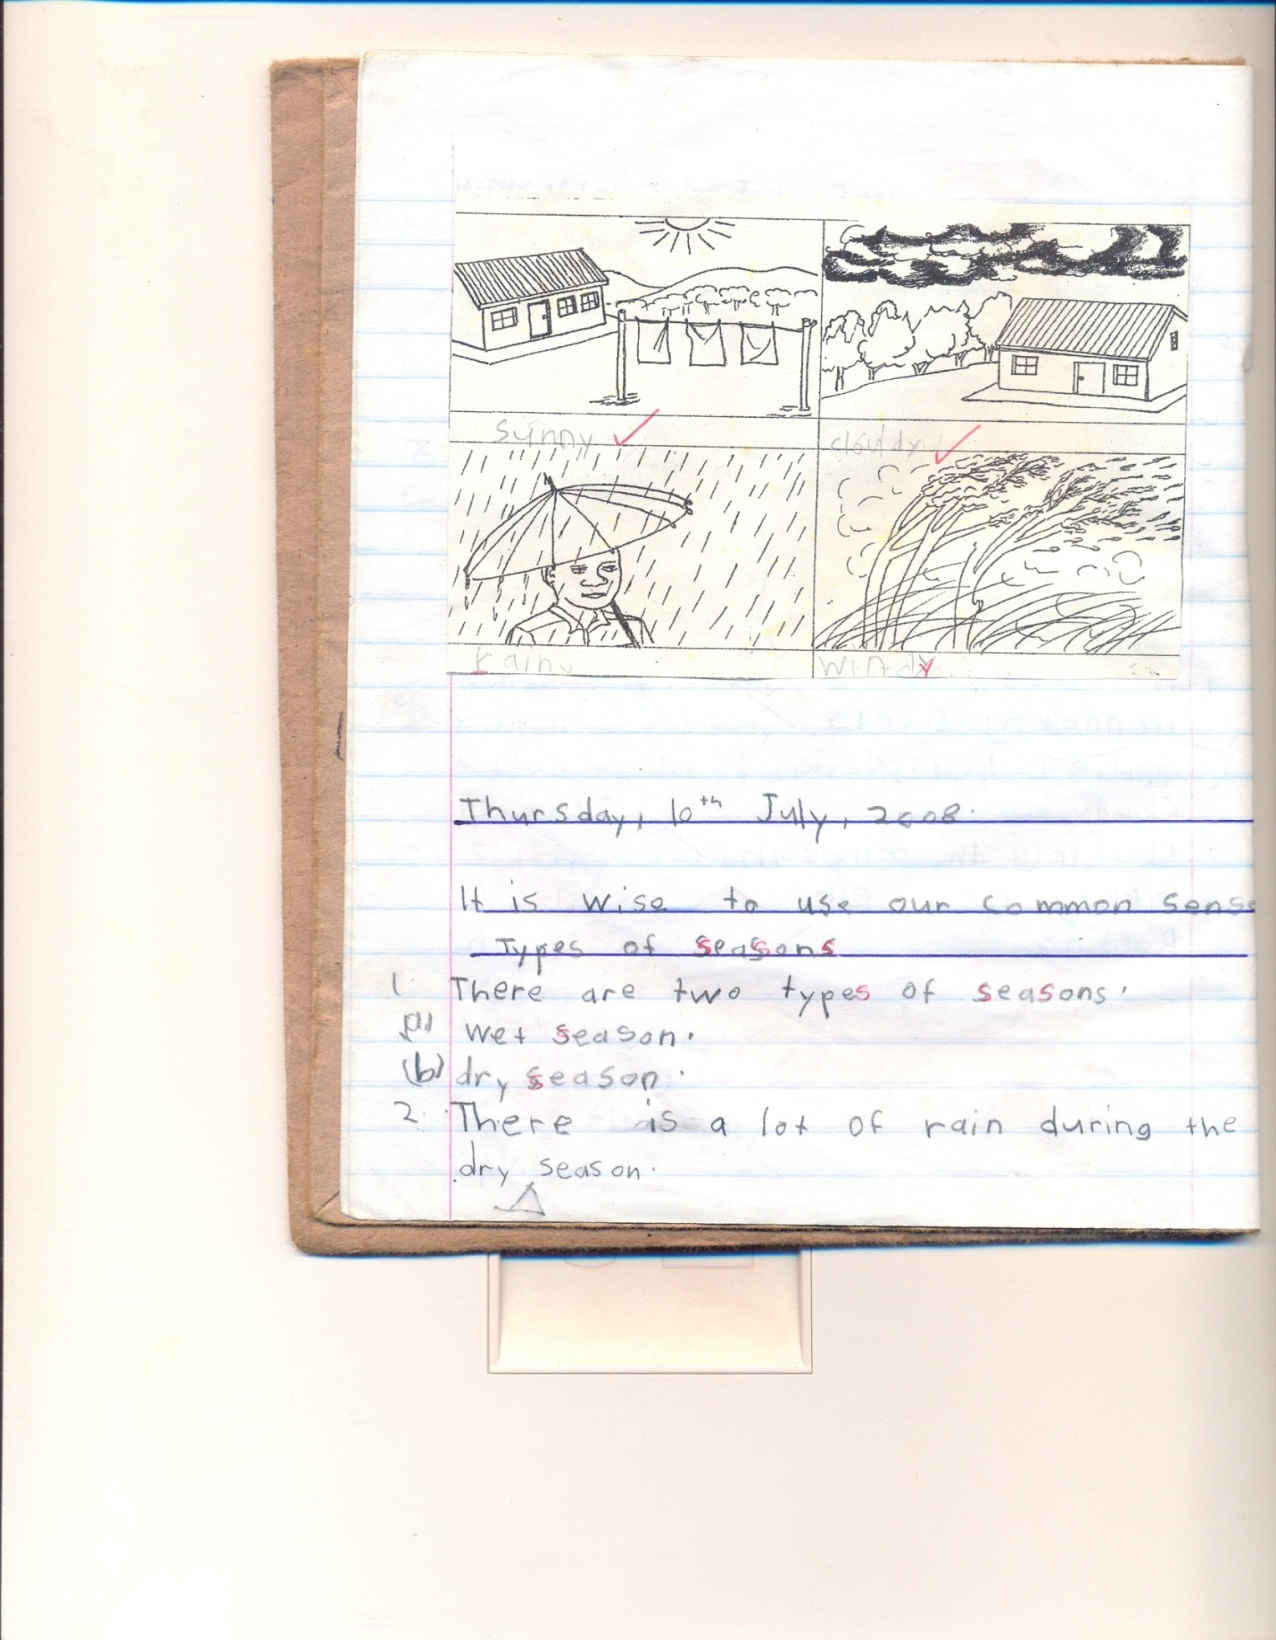 sunny
cloudy
rainy
windy
Thursday, 10th July, 2008.
It is wise to use our common sense
Types of seasons
1. There are two types of seasons.
(a) wet season.
(b) dry season.
2. There is a lot of rain during the
dry season.